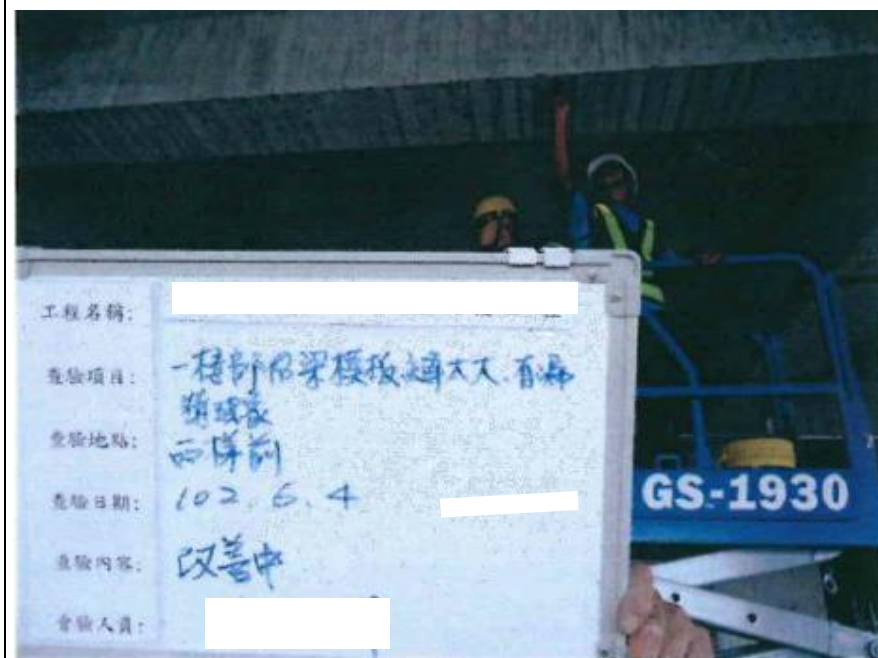 工程名稱:
查驗項目: 一樓部份梁模板縫太大、有漏
漿現象
查驗地點: 西棟前
查驗日期: 102.6.4
查驗內容: 改善中
會驗人員:
GS-1930